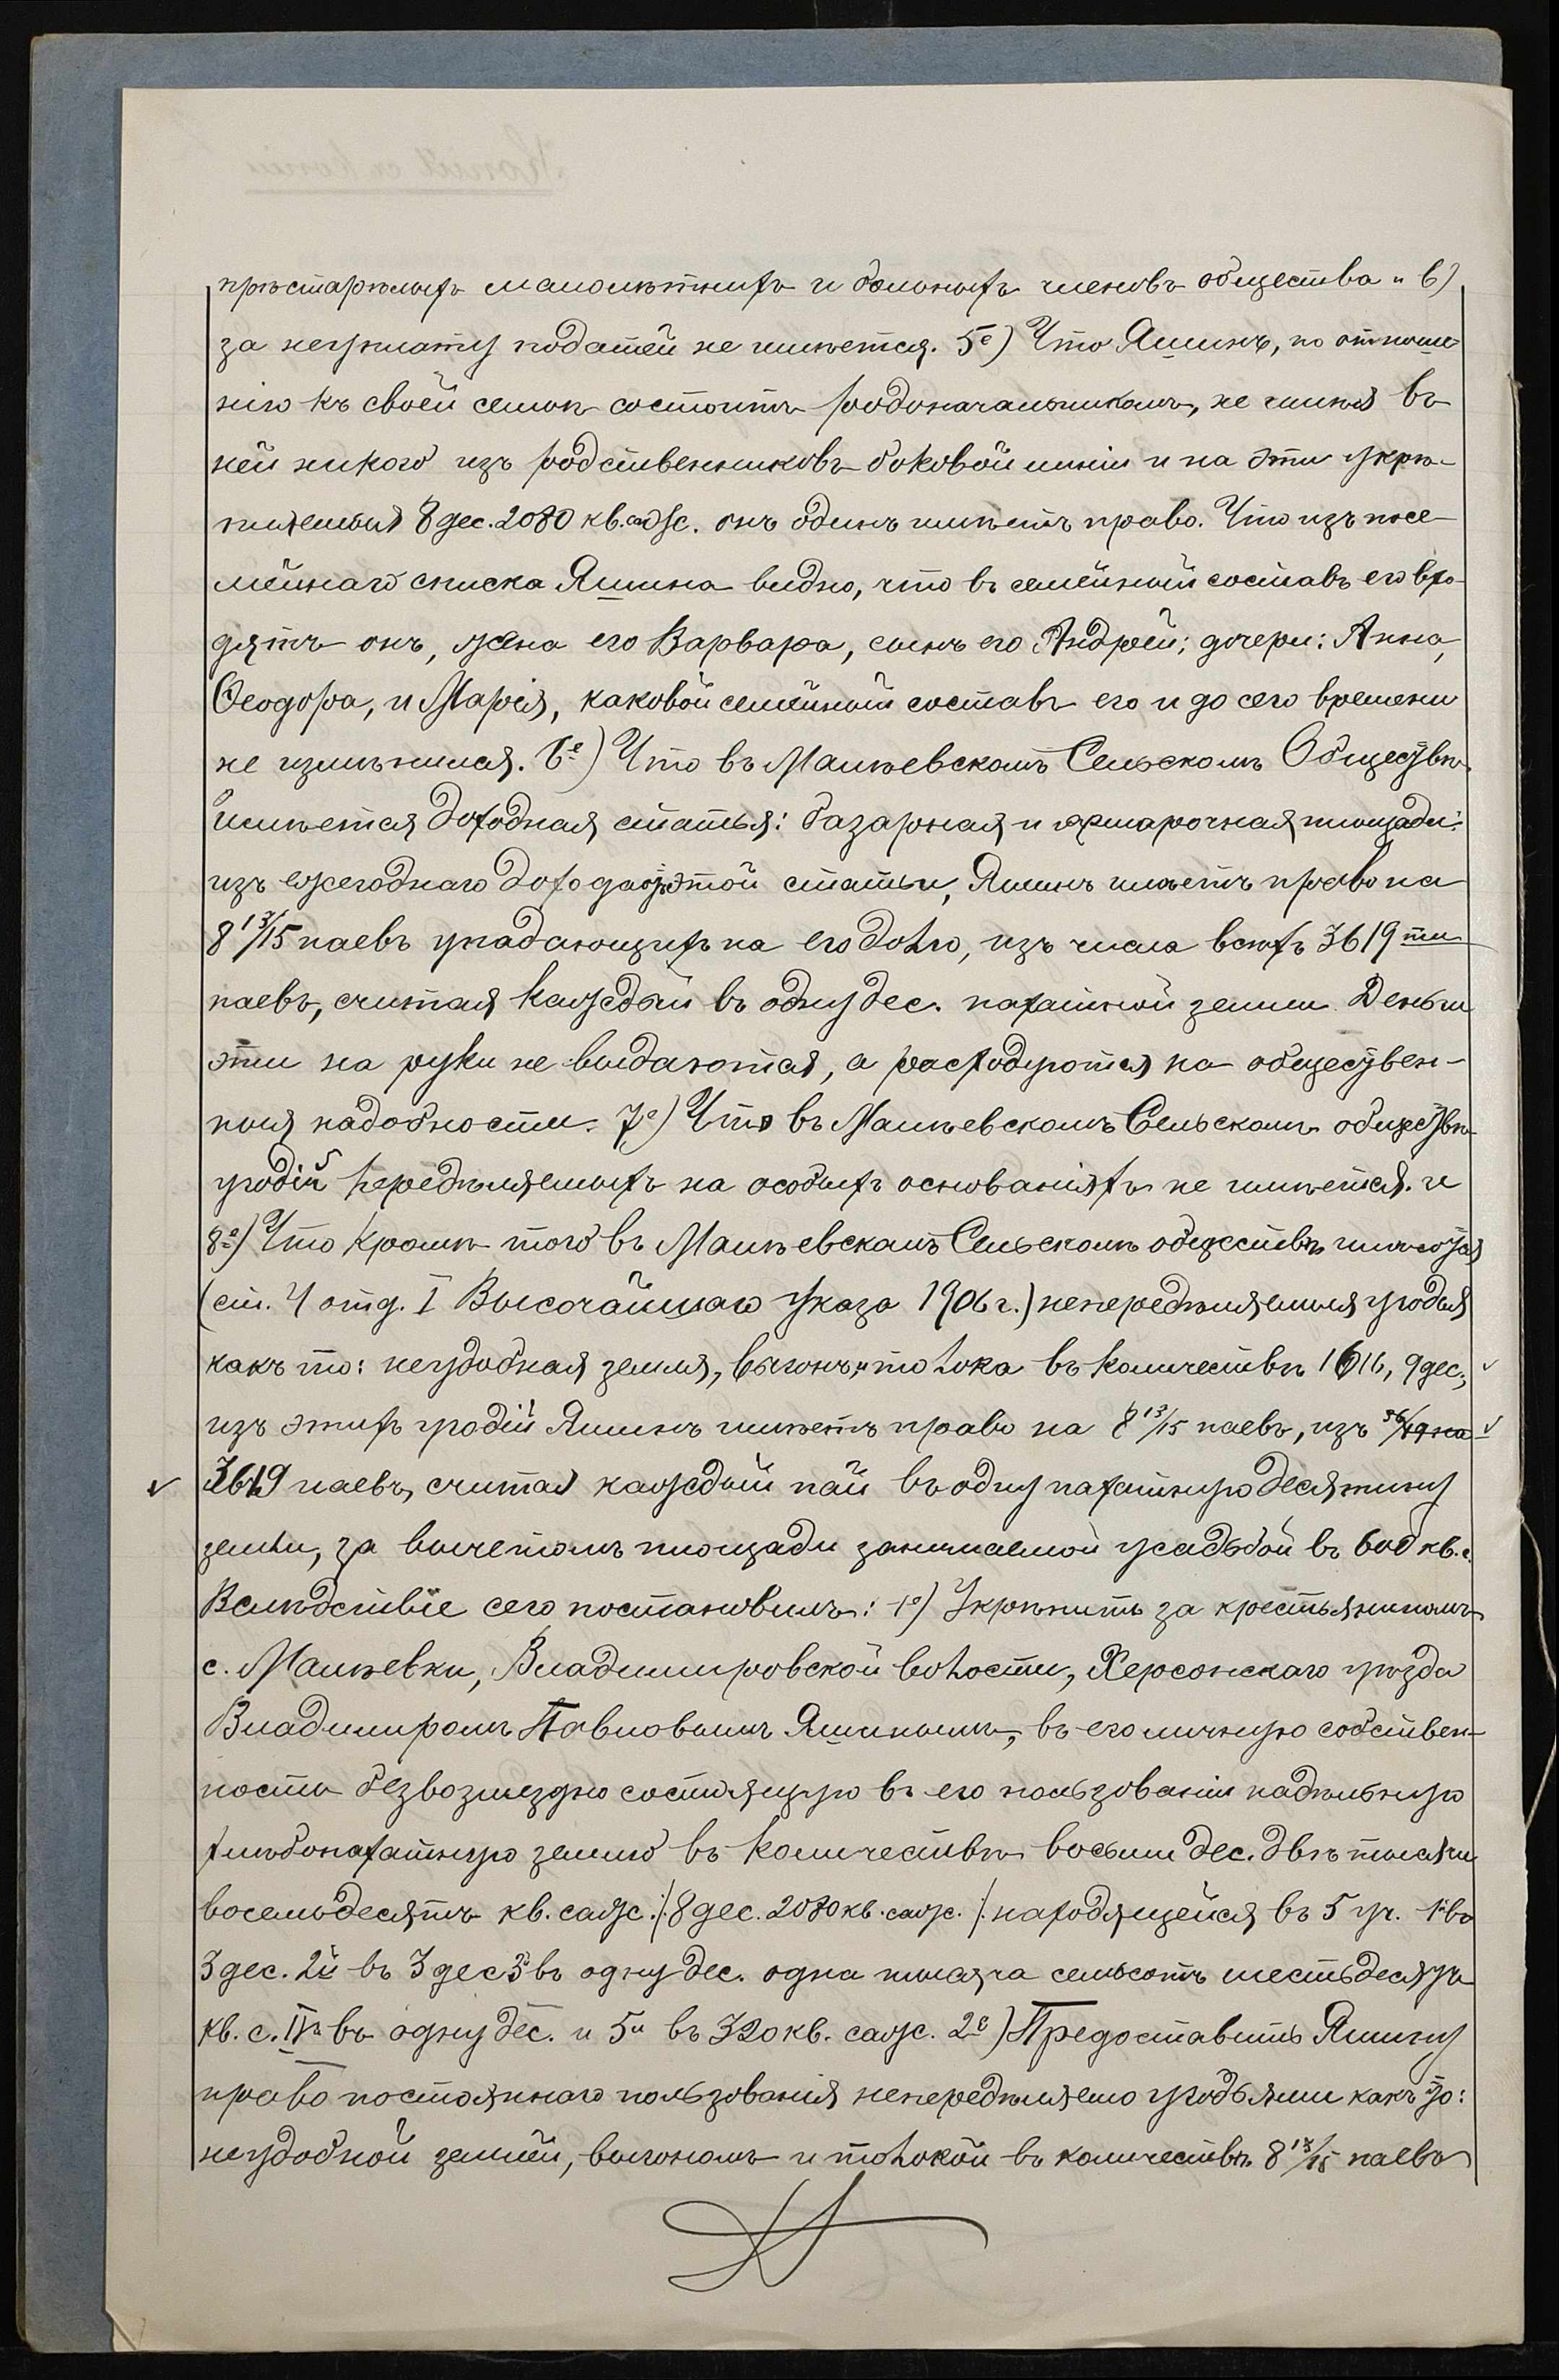 престарѣлыхъ малолѣтнихъ и больныхъ членовъ общества и в)
за неуплату податей не имѣется. 5е) Что Яшинъ, по отноше-
нію къ своей семьѣ состоитъ родоначальникомъ, не имѣя въ
ней никого изъ родственниковъ боковой линіи и на эти укрѣ-
пляемыя 8 дес. 2080 кв. саж. онъ одинъ имѣетъ право. Что изъ посе-
мейнаго списка Яшина видно, что въ семейный составъ его вхо-
дятъ онъ, жена его Варвара, сынъ его Андрей; дочери: Анна,
Ѳеодора, и Марія, каковой семейный составъ его и до сего времени
не измѣнился. 6е) Что въ Малѣевскомъ Сельскомъ Обществѣ
имѣется доходная статья: базарная и ярмарочная площади:
изъ ежегоднаго дохода отъ этой статьи, Яшинъ имѣетъ право на
8 13/15 паевъ упадающихъ на его долю, изъ числа всѣхъ 3619 ти
паевъ, считая каждый въ одну дес. пахатной земли. Деньги
эти на руки не выдаются, а расходуются на обществен-
ныя надобности. 7е) Что въ Малѣевскомъ Сельскомъ обществѣ
угодій передѣляемыхъ на особыхъ основаніяхъ не имѣется. и
8е) Что кромѣ того въ Малѣевскомъ Сельскомъ обществѣ имѣются
(ст. 4 отд. I Высочайшаго Указа 1906 г.) непередѣляемыя угодья
какъ то: неудобная земля, выгонъ и толока въ количествѣ 1616, 9 дес.,
изъ этихъ угодій Яшинъ имѣетъ право на 8 13/15 паевъ, изъ
3619 паевъ, считая каждый пай въ одну пахатную десятину
земли, за вычетомъ площади занимаемой усадьбой въ 600 кв. с.
Вслѣдствіе сего постановилъ: 1е) Укрѣпить за крестьяниномъ
с. Малѣевки, Владимировской волости, Херсонскаго уѣзда
Владимиромъ Павловымъ Яшинымъ, въ его личную собствен-
ность безвозмездно состоящую въ его пользованіи надѣльную
хлѣбопахатную землю въ количествѣ восьми дес. двѣ тысячи
восемьдесятъ кв. саж. /: 8 дес. 2080 кв. саж. :/ находящейся въ 5 уч. 1й въ
3 дес. 2й въ 3 дес 3й въ одну дес. одна тысяча семьсотъ шестьдесятъ
кв. с. IVй въ одну дес. и 5й въ 320 кв. саж. 2е) Предоставить Яшину
право постояннаго пользованія непередѣляемо угодьями какъ то:
неудобной землей, выгономъ и толокой въ количествѣ 8 13/15 паевъ